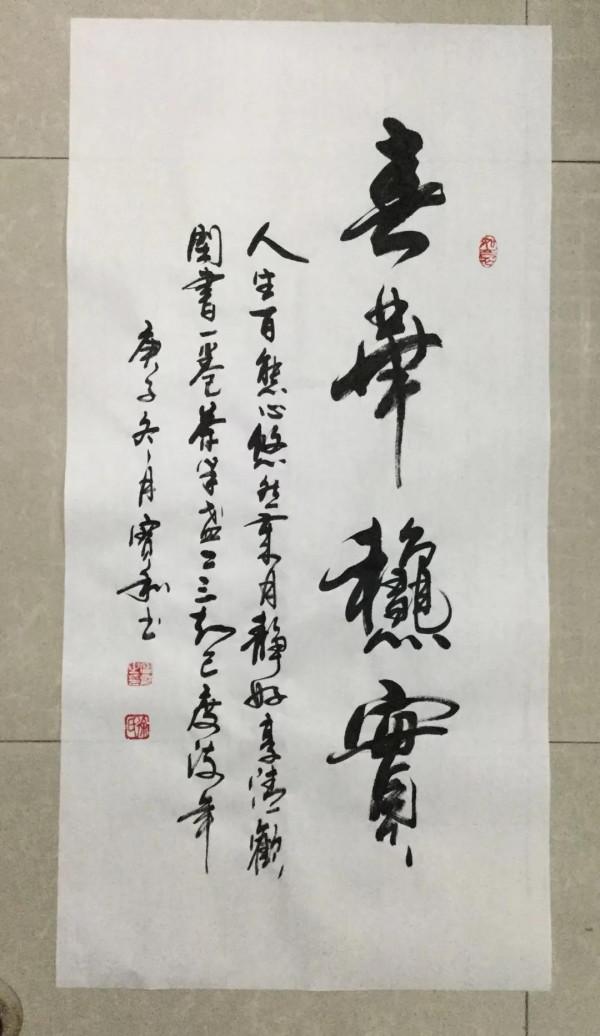 春華龝實
人生百態心悠然歲月靜好享清歡
閑書一卷茶半盞二三知己度流年
庚子冬月寶和书